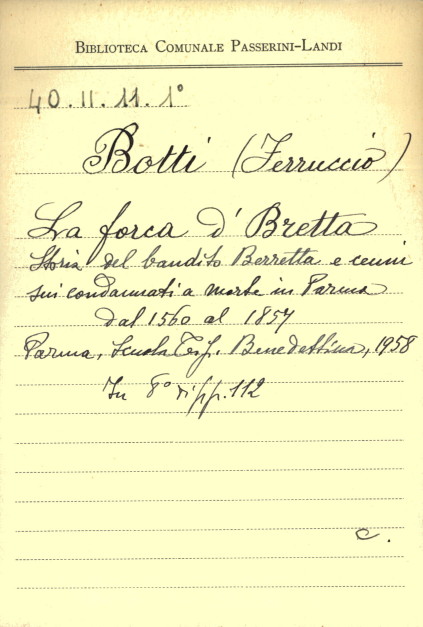 BIBLIOTECA COMUNALE PASSERINI-LANDI
40.II.11.1°
Botti (Ferruccio)
La forca d'Bretta
Storia del bandito Berretta e cenni
sui condannati a morte in Parma
dal 1560 al 1857
Parma, Scuola Tip. Benedettina, 1958
In 8° di pp. 112
C.